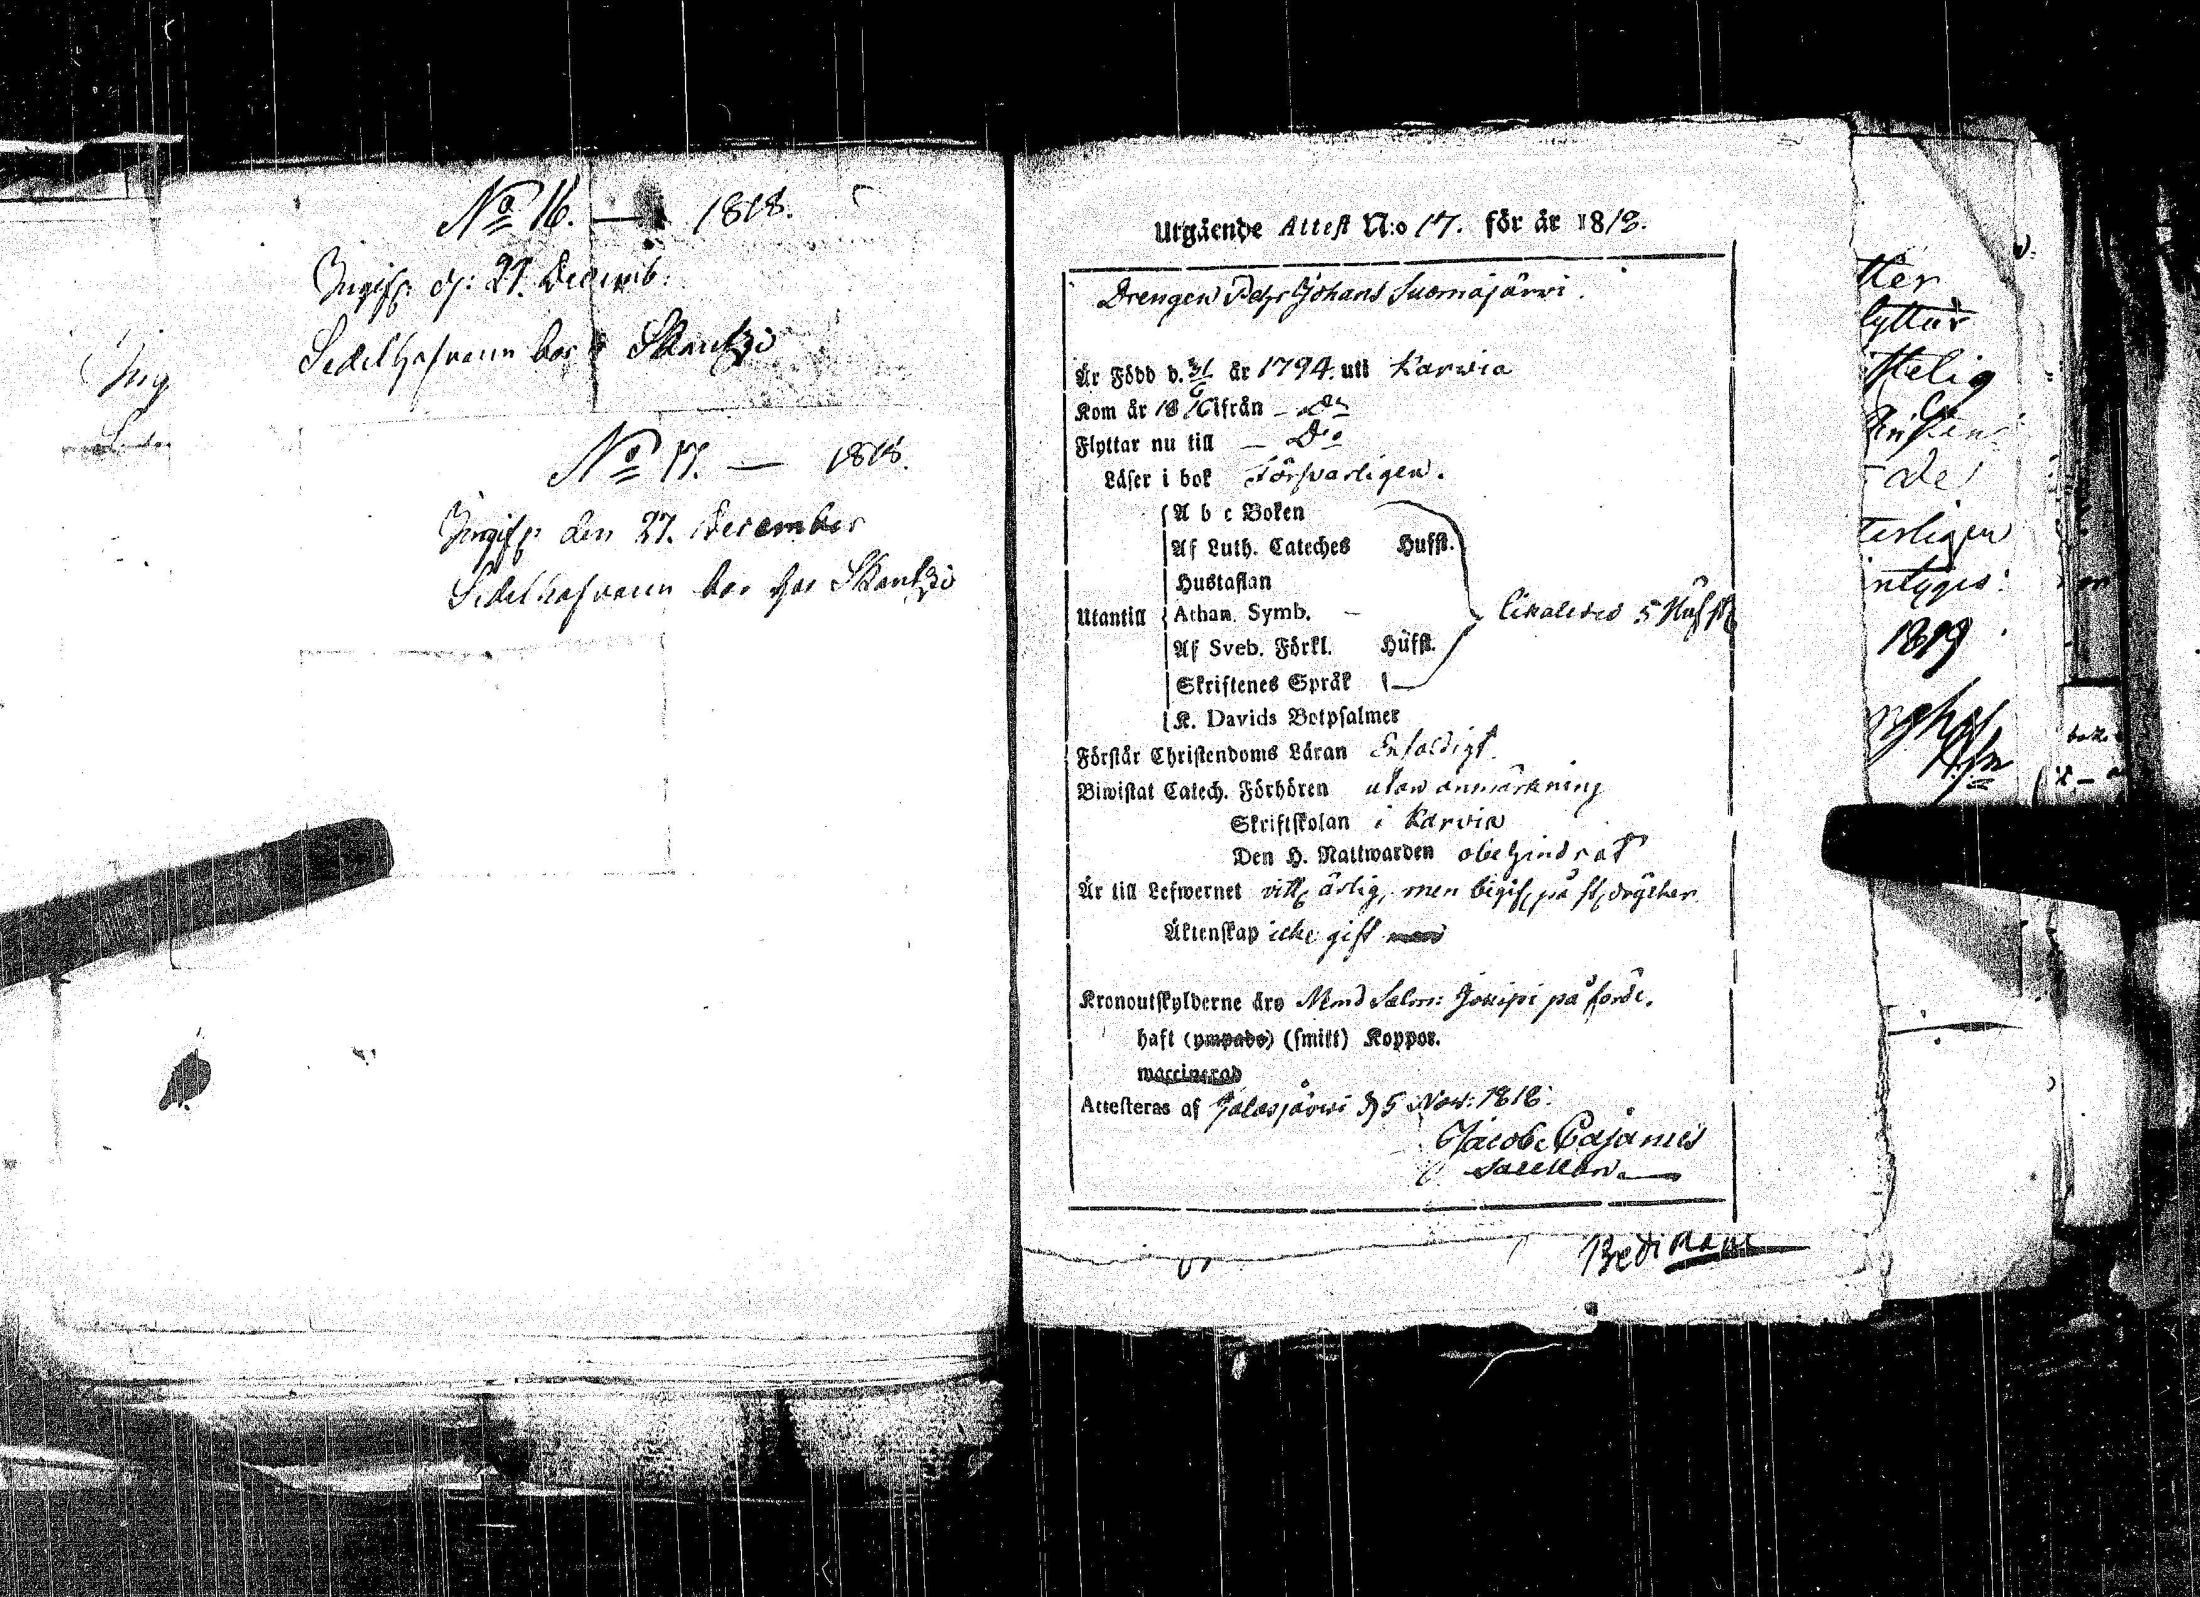 No 16. — 1818.
Ingifv. d: 27. Decemb:
Sedelhafvaren bor Skantzio
No 17. — 1818.
Ingifv. den 27. December
Sedelhafvaren bor hos Skantzio
Ing
Utgående Attest N:o 17. för år 1818.
Drengen Petr Johans Suomajärvi.
Är Född d. 31/6 år 1794. uti Karvia
Kom år 1816 ifrån — Do
Flyttar nu till — Do
Läser i bok Försvarligen.
A b c Boken
Af Luth. Cateches Hufst.
Hustaflan
Utantill Athan. Symb. — likaledes 5 Hufst
Af Sveb. Förkl. Hufst.
Skriftenes Språk
K. Davids Botpsalmer
Förstår Christendoms Läran Enfaldigt.
Biwistat Catech. Förhören utan anmärkning
Skriftskolan i Karvia
Den H. Nattwarden obehindrat
Är till Lefwernet ärlig, men på drycker
Äktenskap icke gift
Kronoutskylderne äro på förde.
haft (ympade) (smitt) Koppor.
waccinerad
Attesteras af Jalasjärvi d 5 Nov: 1818.
Jacob Cajanus
Sacellan.
tter
lyttar
ttelig
de
terligen
ntygas:
1819